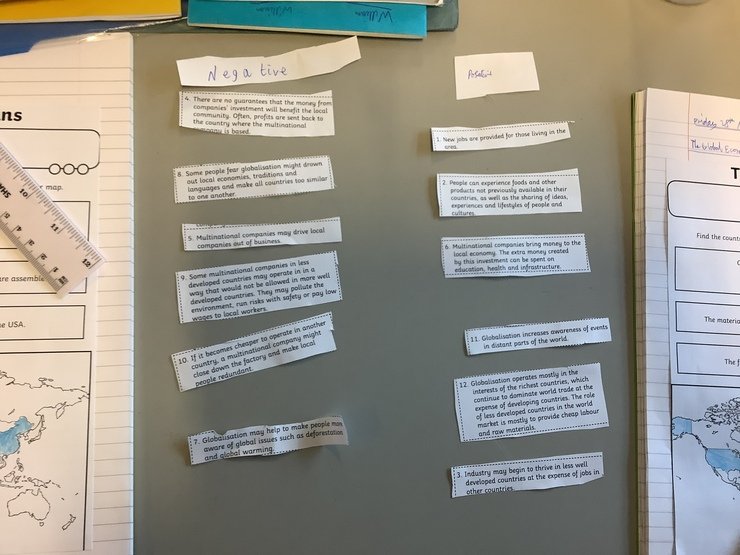 William
William
Negative
Positive
4. There are no guarantees that the money from
companies' investment will benefit the local
community. Often, profits are sent back to
the country where the multinational
company is based.
8. Some people fear globalisation might drown
out local economies, traditions and
languages and make all countries too similar
to one another.
5. Multinational companies may drive local
companies out of business.
9. Some multinational companies in less
developed countries may operate in in a
way that would not be allowed in more well
developed countries. They may pollute the
environment, run risks with safety or pay low
wages to local workers.
10. If it becomes cheaper to operate in another
country, a multinational company might
close down the factory and make local
people redundant.
7. Globalisation may help to make people more
aware of global issues such as deforestation
and global warming.
1. New jobs are provided for those living in the
area.
2. People can experience foods and other
products not previously available in their
countries, as well as the sharing of ideas,
experiences and lifestyles of people and
cultures.
6. Multinational companies bring money to the
local economy. The extra money created
by this investment can be spent on
education, health and infrastructure.
11. Globalisation increases awareness of events
in distant parts of the world.
12. Globalisation operates mostly in the
interests of the richest countries, which
continue to dominate world trade at the
expense of developing countries. The role
of less developed countries in the world
market is mostly to provide cheap labour
and raw materials.
3. Industry may begin to thrive in less well
developed countries at the expense of jobs in
other countries.
ns
map.
are assemble
e USA.
9 10 11 12
Friday 28th
The Global Econ
T
Find the count
The materia
The f